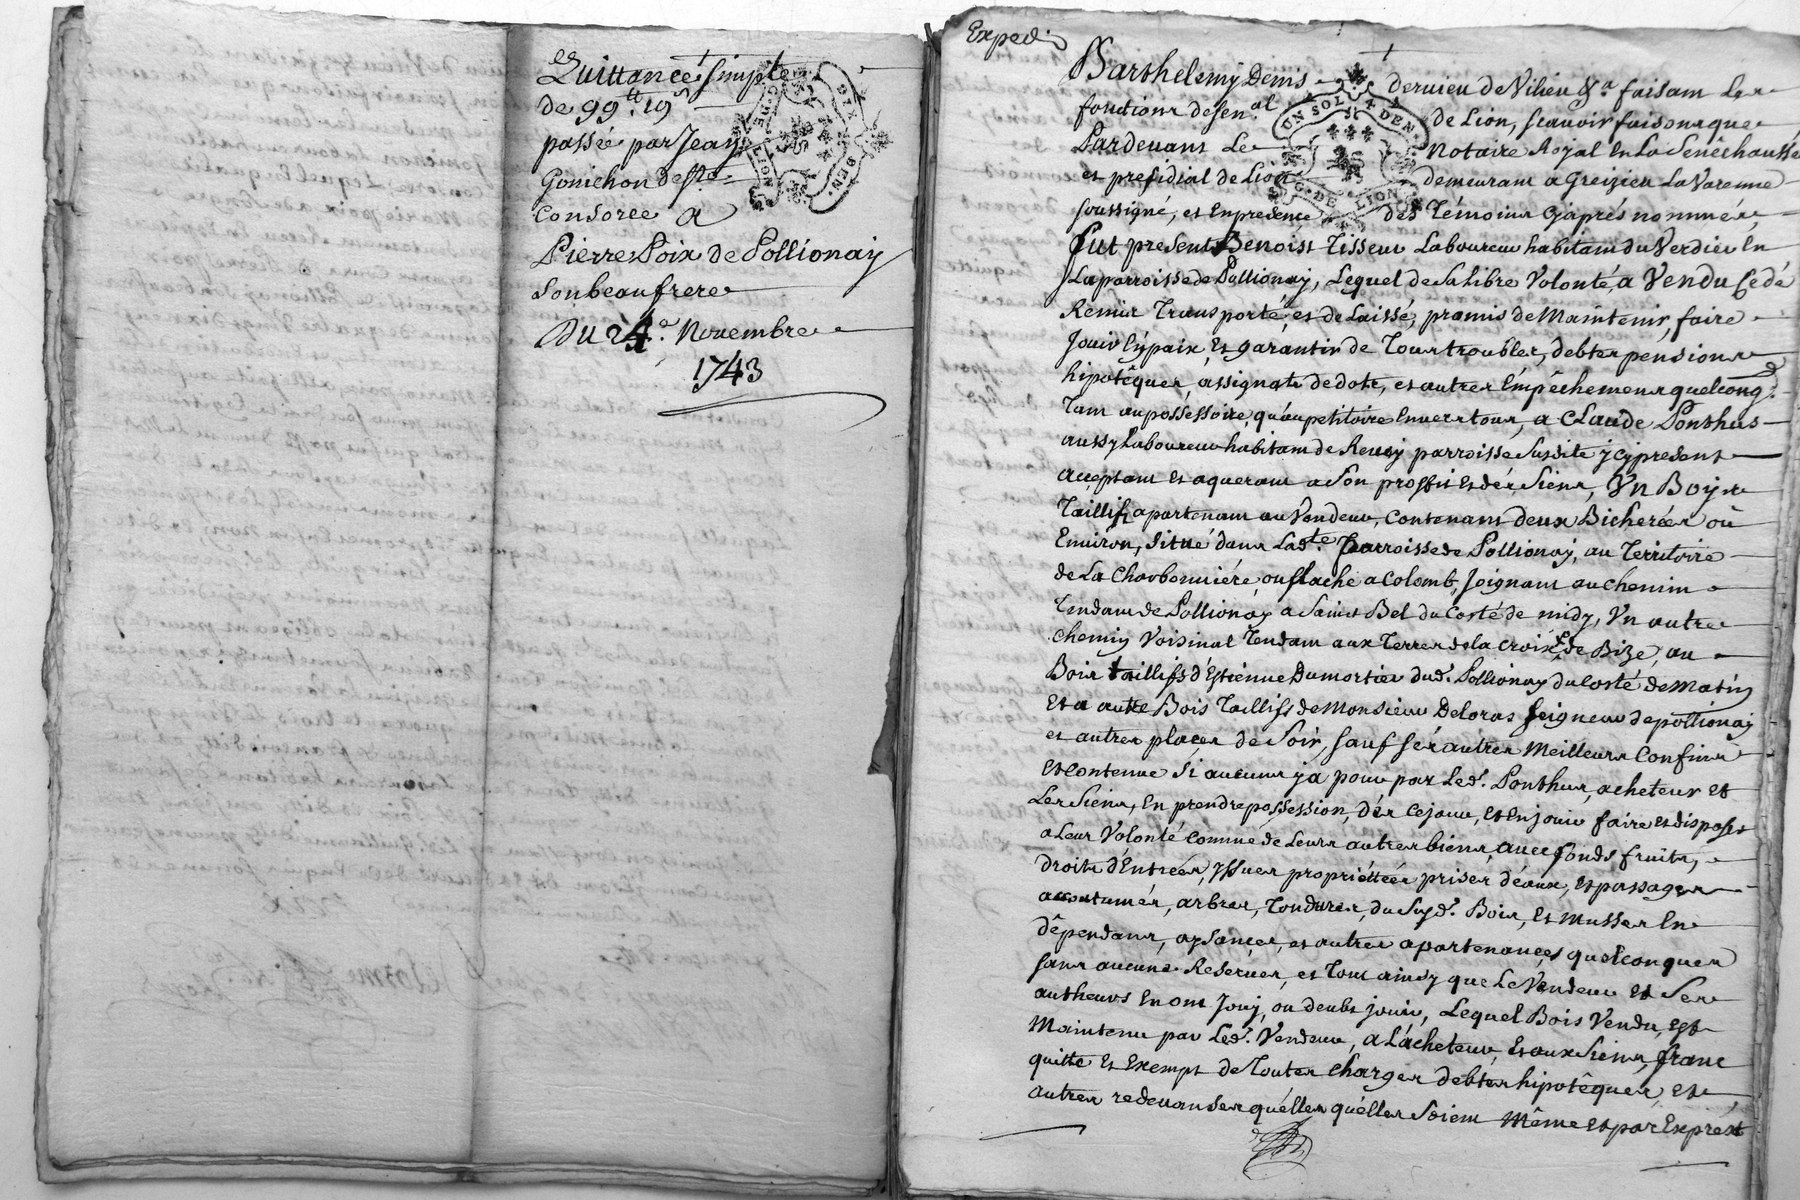 Quittance simple
de 99 ₶ 19 s
passée par Jean
Gonichon de
Consorce A
Pierre Poix de Pollionay
Son beaufrere
Du 24e. Novembre
1743
Exped.
Barthelemy Denis Dervieu de Vilieu &a faisant Les
fonctions de Sen.al de Lion, scavoir faisons que
Pardevant Le Notaire Royal En La Senêchaussé
et presidial de Lion demeurant a Greizieu La Varenne
soussigné, et En presence des Têmoins cy aprés nommés,
fut present Benoist Tisseur Laboureur habitant du Verdier En
La parroisse de Pollionay, Lequel de Sa Libre Volonté, a Vendu Cedé
Remis Transporté, et de Laissé, promis de Maintenir, faire
Jouir En paix, Et garantir de Tous troubles, debtes pensions
hipotêques, assignats de dote, et autres Empêchemens quelconq.
Tant au possessoire, qu'au petitoire Envers tous, a Claude Ponthus
aussy Laboureur habitant de Reusy parroisse Susdite y cy present
acceptant Et aquerant a Son proffit Et dés Siens, Un Boys
Taillifs apartenant au Vendeur, Contenant deux Bicherées ou
Environ, Situé dans Lad.te Parroisse de Pollionay, au Territoire
de La Charbonniére ou flache a Colomb, Joignant au chemin
Tendant de Pollionay a Saint Bel du Costé de midy, Un autre
chemin Voisinal Tendant aux Terres de la Croix de Bize, au
Bois taillifs d'Estienne Dumortier dud. Pollionay du Costé de Matin
Et a autre Bois Taillifs de Monsieur Deloras Seigneur de pollionay
et autres places de Soir, Sauf sés autres Meilleurs Confins
Et Contenue Si aucuns y a pour par Led. Ponthus, acheteur Et
Les Siens, En prendre possession, dés Cejour, Et En jouir faire Et disposer
a Leur Volonté comme de Leurs autres biens, avec fonds fruits,
droits d'Entrées, Yssues propriéttées prises d'eaux, Et passages
accoutumés, arbres, Tondures, du Susd. Bois, Et Musses En
dêpendans, aysances, et autres apartenances quelconques
Sans aucunes Reserves, et Tout ainsy que Le Vendeur Et Ses
autheurs En ont Jouy, ou deubt jouir, Lequel Bois Vendu, Est
Maintenu par Led. Vendeur, a L'acheteur, Et aux Siens, franc
quitte Et Exempt de Toutes Charges debtes hipotêques, Et
autres redevances quélles quélles Soient Même Et par Exprés
UN SOL 4. DEN.
G. DE LION